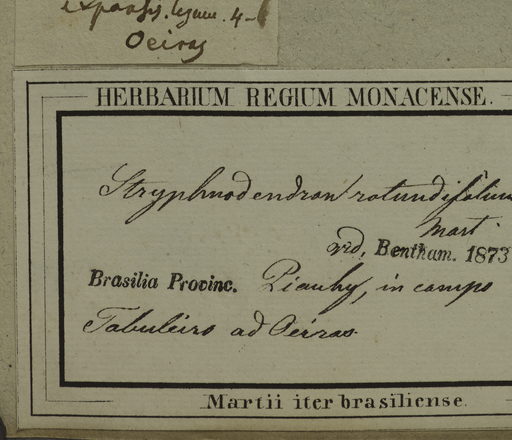 expansis. legum. 4-
Oeiras
HERBARIUM REGIUM MONACENSE.
Stryphnodendron rotundifolium
Mart.
vid. Bentham. 1873
Brasilia Provinc. Piauhy, in campo
Tabuleiro ad Oeiras
Martii iter brasiliense.